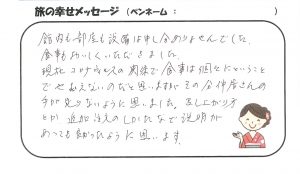 旅の幸せメッセージ (ペンネーム : )
館内も部屋も設備は申し分ありませんでした。
食事もおいしくいただきました。
現在コロナウィルスの関係で食事は個々にということ
でせわしないのだと思いますがその分仲居さんの
手が足りないように思いました。お召し上がり方
とか 追加注文の しかたなど説明が
あっても良かったように思います。